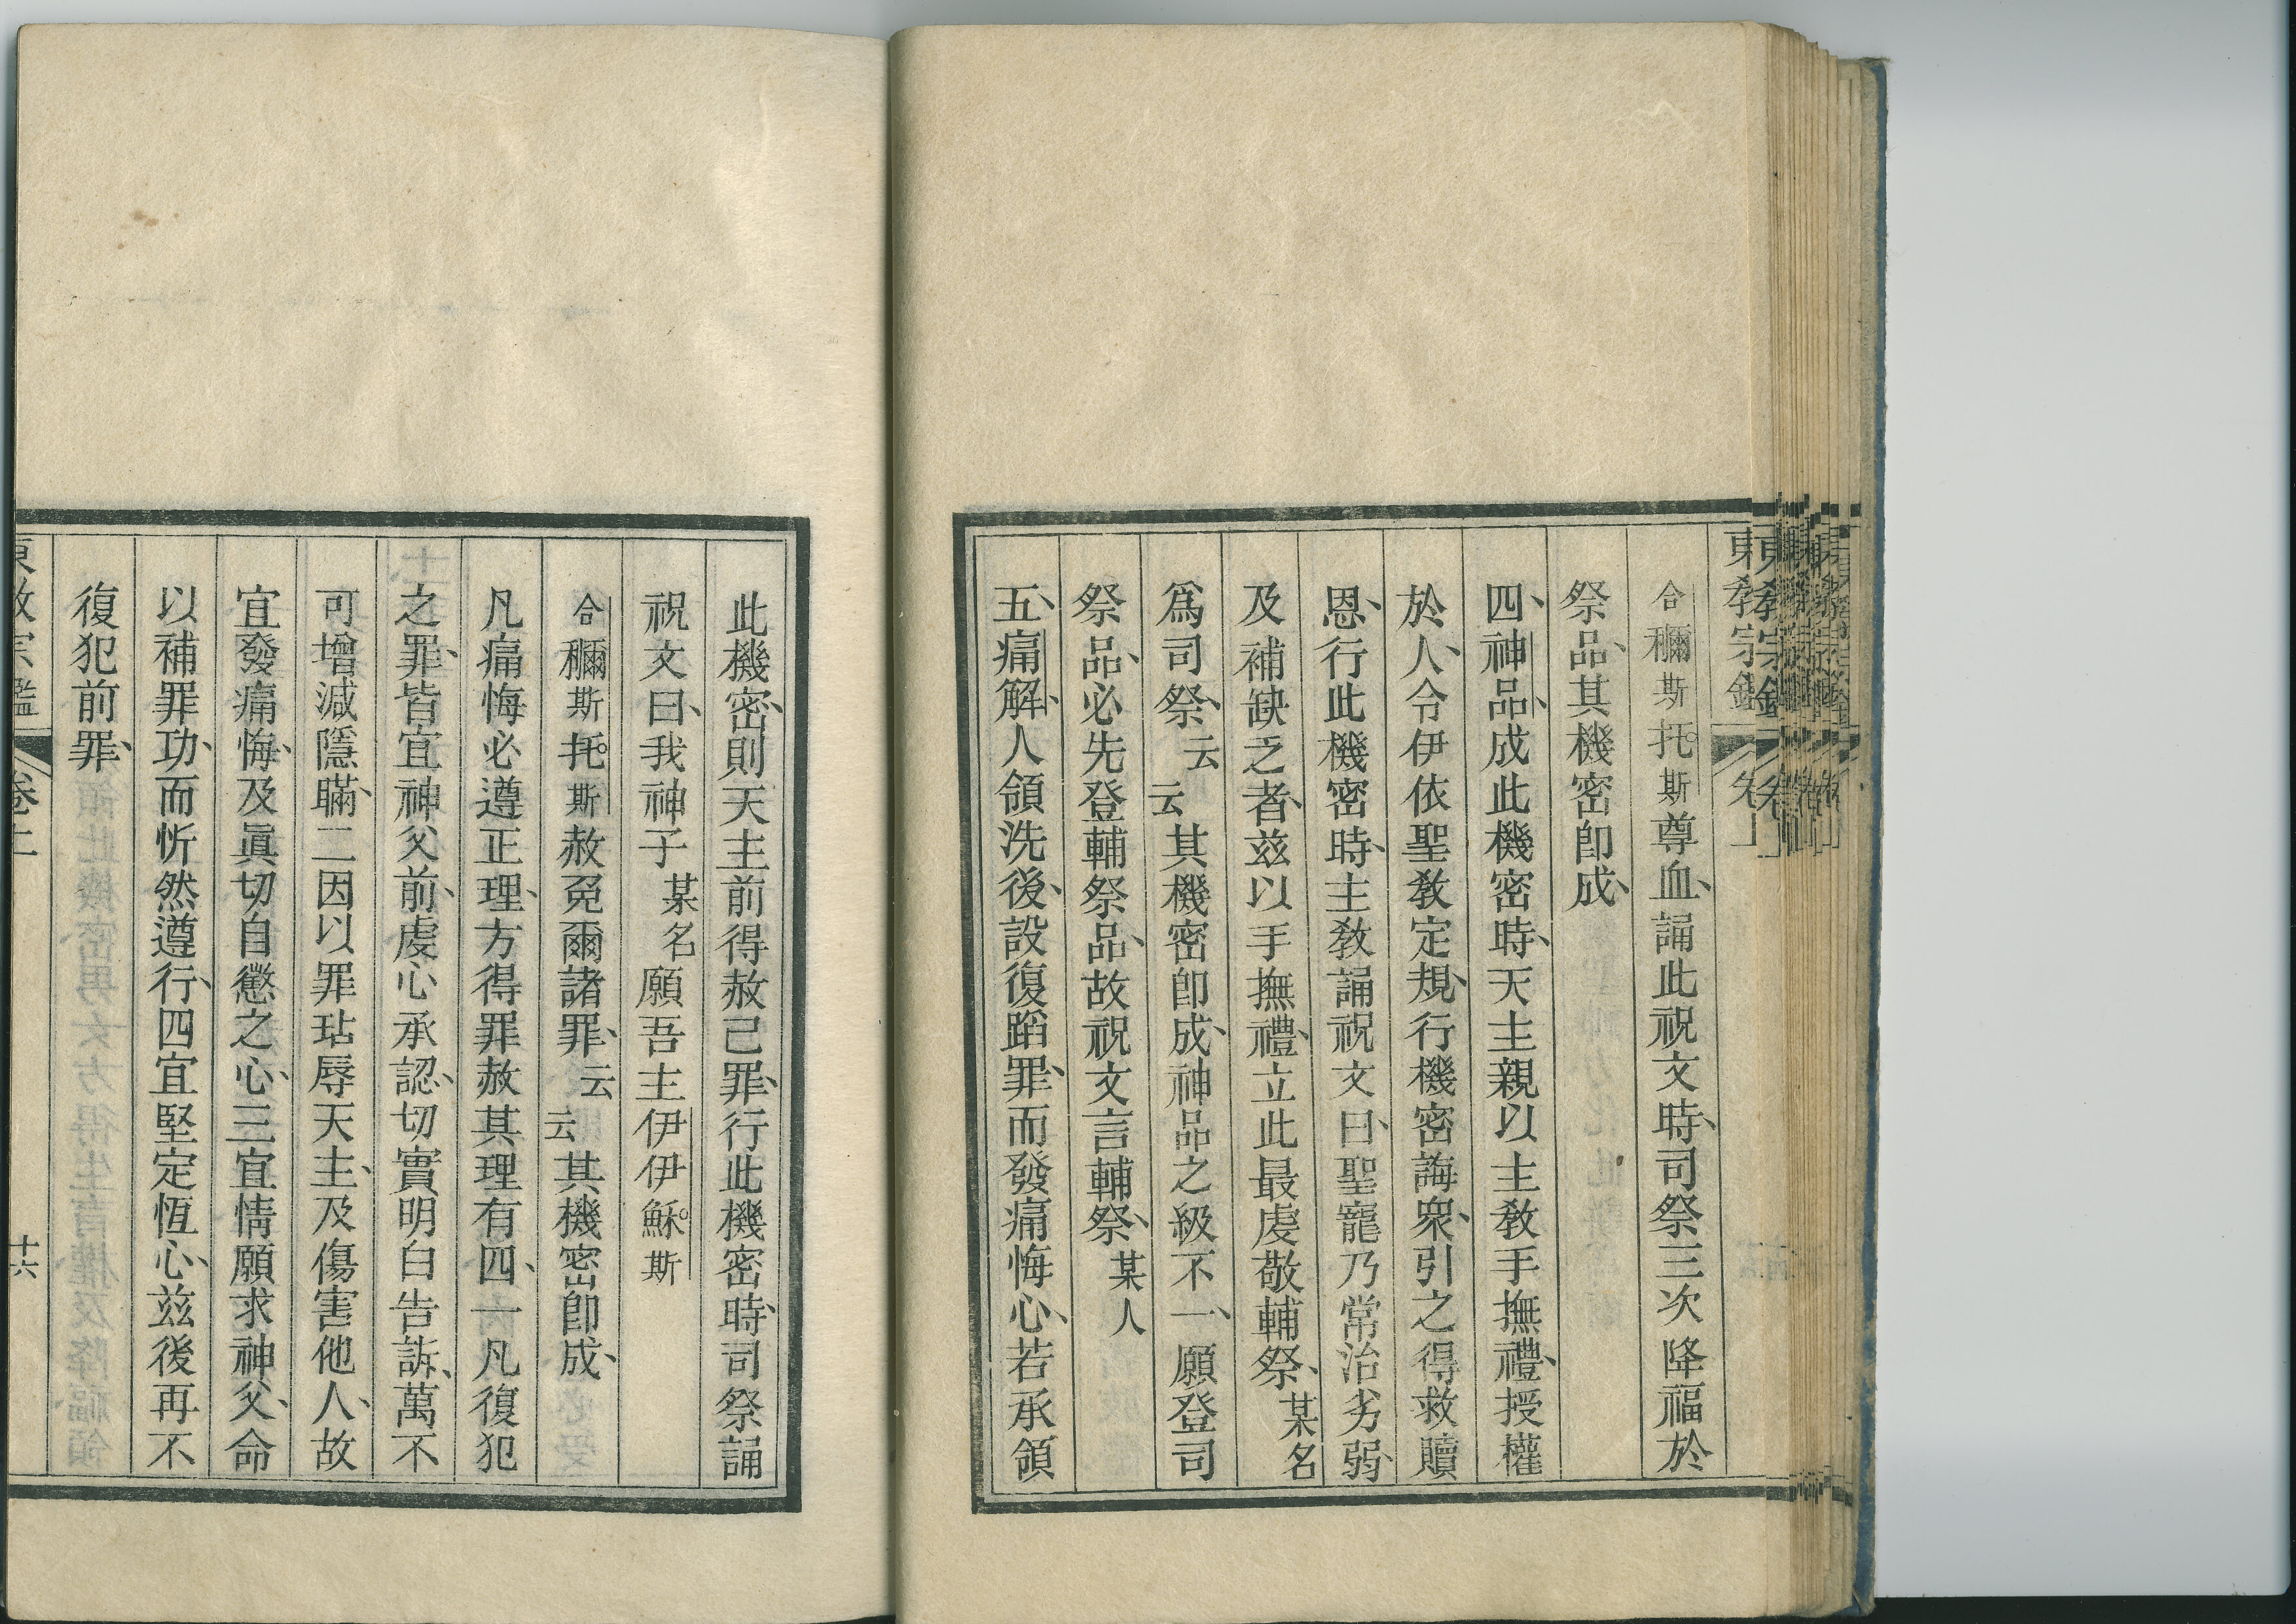 東敎宗鑑
合穪斯托斯尊血、誦此祝文時、司祭三次降福於
祭品、其機密卽成、
四、神品、成此機密時、天主親以主敎手撫禮、授權
於人、令伊依聖敎定規、行機密誨衆、引之得救贖
恩、行此機密時、主敎誦祝文曰、聖寵乃常治劣弱、
及補缺乏者、兹以手撫禮、立此最虔敬輔祭、某名
爲司祭、云云其機密卽成、神品之級不一、願登司
祭品、必先登輔祭品、故祝文言輔祭、某人
五、痛解、人領洗後、設復蹈罪、而發痛悔心、若承領
此機密、則天主前得赦己罪、行此機密時、司祭誦
祝文曰、我神子某名願吾主伊伊穌斯
合穪斯托斯赦免爾諸罪、云云其機密卽成、
凡痛悔必遵正理、方得罪赦其理有四、一凡復犯
之罪、皆宜神父前、虔心承認、切實明白告訴、萬不
可增減隱瞞、二因以罪玷辱天主、及傷害他人、故
宜發痛悔、及眞切自懲之心、三宜情願求神父、命
以補罪功、而忻然遵行、四宜堅定恆心、兹後再不
復犯前罪、
東敎宗鑑
卷上
十六